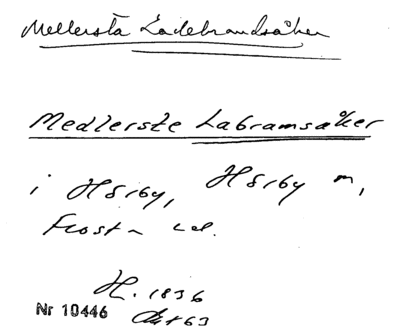 Mellersta Ladebrandsåker
Medlerste Labramsåker
i Hörby, Hörby m,
Frosta hd.
H. 1836
Nr 10446 Akt 63